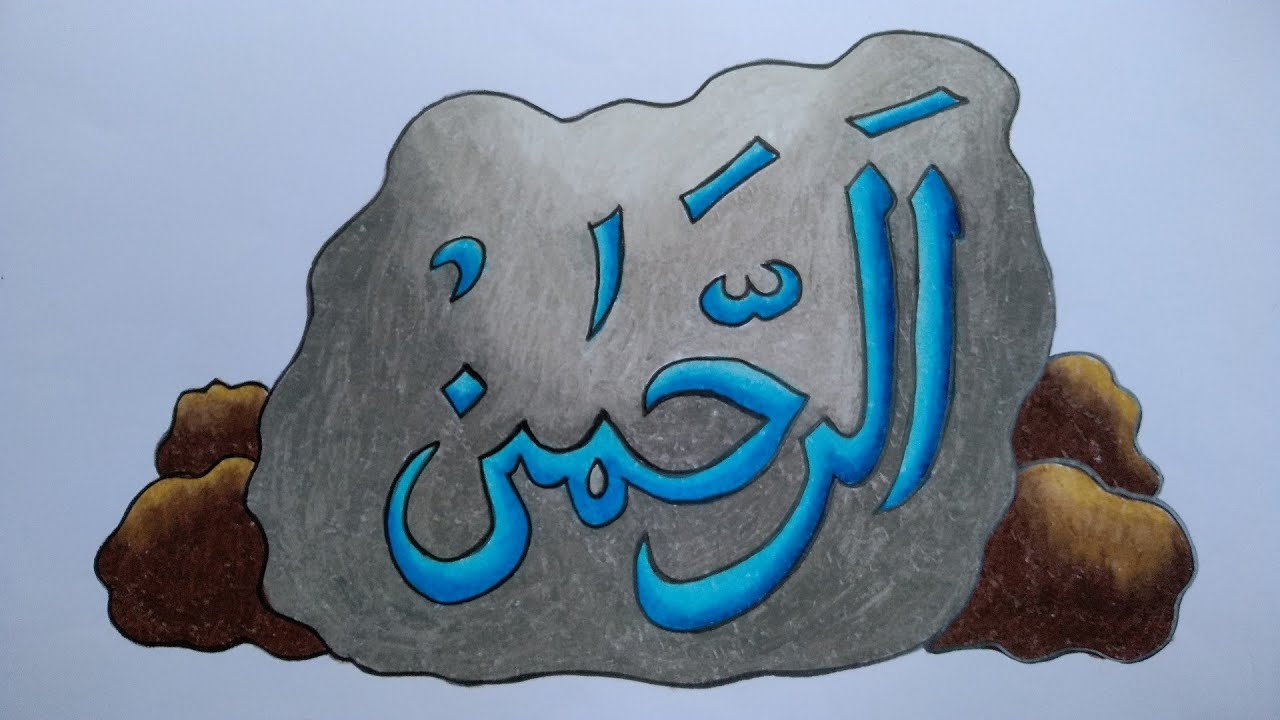 اَلرَّحمٰنُ